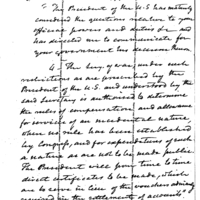 The President of the U.S has maturely
considered the questions relative to your
official powers and duties &c and
has directed me to communicate for
your government his decision thereon
4. The Secy of war under such
restrictions as are prescribed by the
President of the U.S. and understood by the
said Secretary is authorised to determine
the rate of compensation and allowance
for services of an incidental nature,
when no rule has been established
by Congress, and for expenditures of such
a nature as are not to be made public
The President will from time to time
direct certificates to be made, which
are to serve in lieu of the vouchers
required in the settlements of accounts.